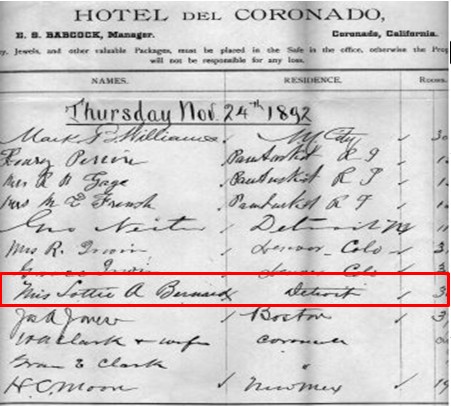 HOTEL DEL CORONADO,
E. S. BABCOCK, Manager. Coronado, California.
y, Jewels, and other valuable Packages, must be placed in the Safe in the office, otherwise the Prop
will not be responsible for any loss.
NAMES. RESIDENCE. ROOMS
Thursday Nov. 24th 1892
Mark P. Williams NY City
Pawtucket R I
Mrs R H Gage Pawtucket R I
Mrs M E French Pawtucket R I
Geo Detroit M
Mrs R. Irwin Denver Colo 3
Irwin Denver Colo 3
Miss Lottie A Bernard Detroit 3
Jas A Jones Boston 3
W A Clark & wife coronado
E Clark "
H. C. Moon New Mex 19